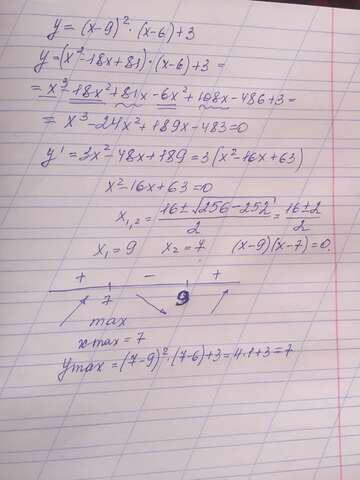 y = (x-9)² · (x-6)+3
y = (x²-18x+81) · (x-6)+3 =
= x³-18x²+81x-6x²+108x-486+3=
= x³-24x²+189x-483=0
y' = 3x²-48x+189 = 3(x²-16x+63)
x²-16x+63=0
x₁,₂ = (16±√256-252)/2 = (16±2)/2
x₁ = 9 x₂ = 7 (x-9)(x-7)=0
+ - +
7 9
max
xmax = 7
ymax = (7-9)²·(7-6)+3=4·1+3=7